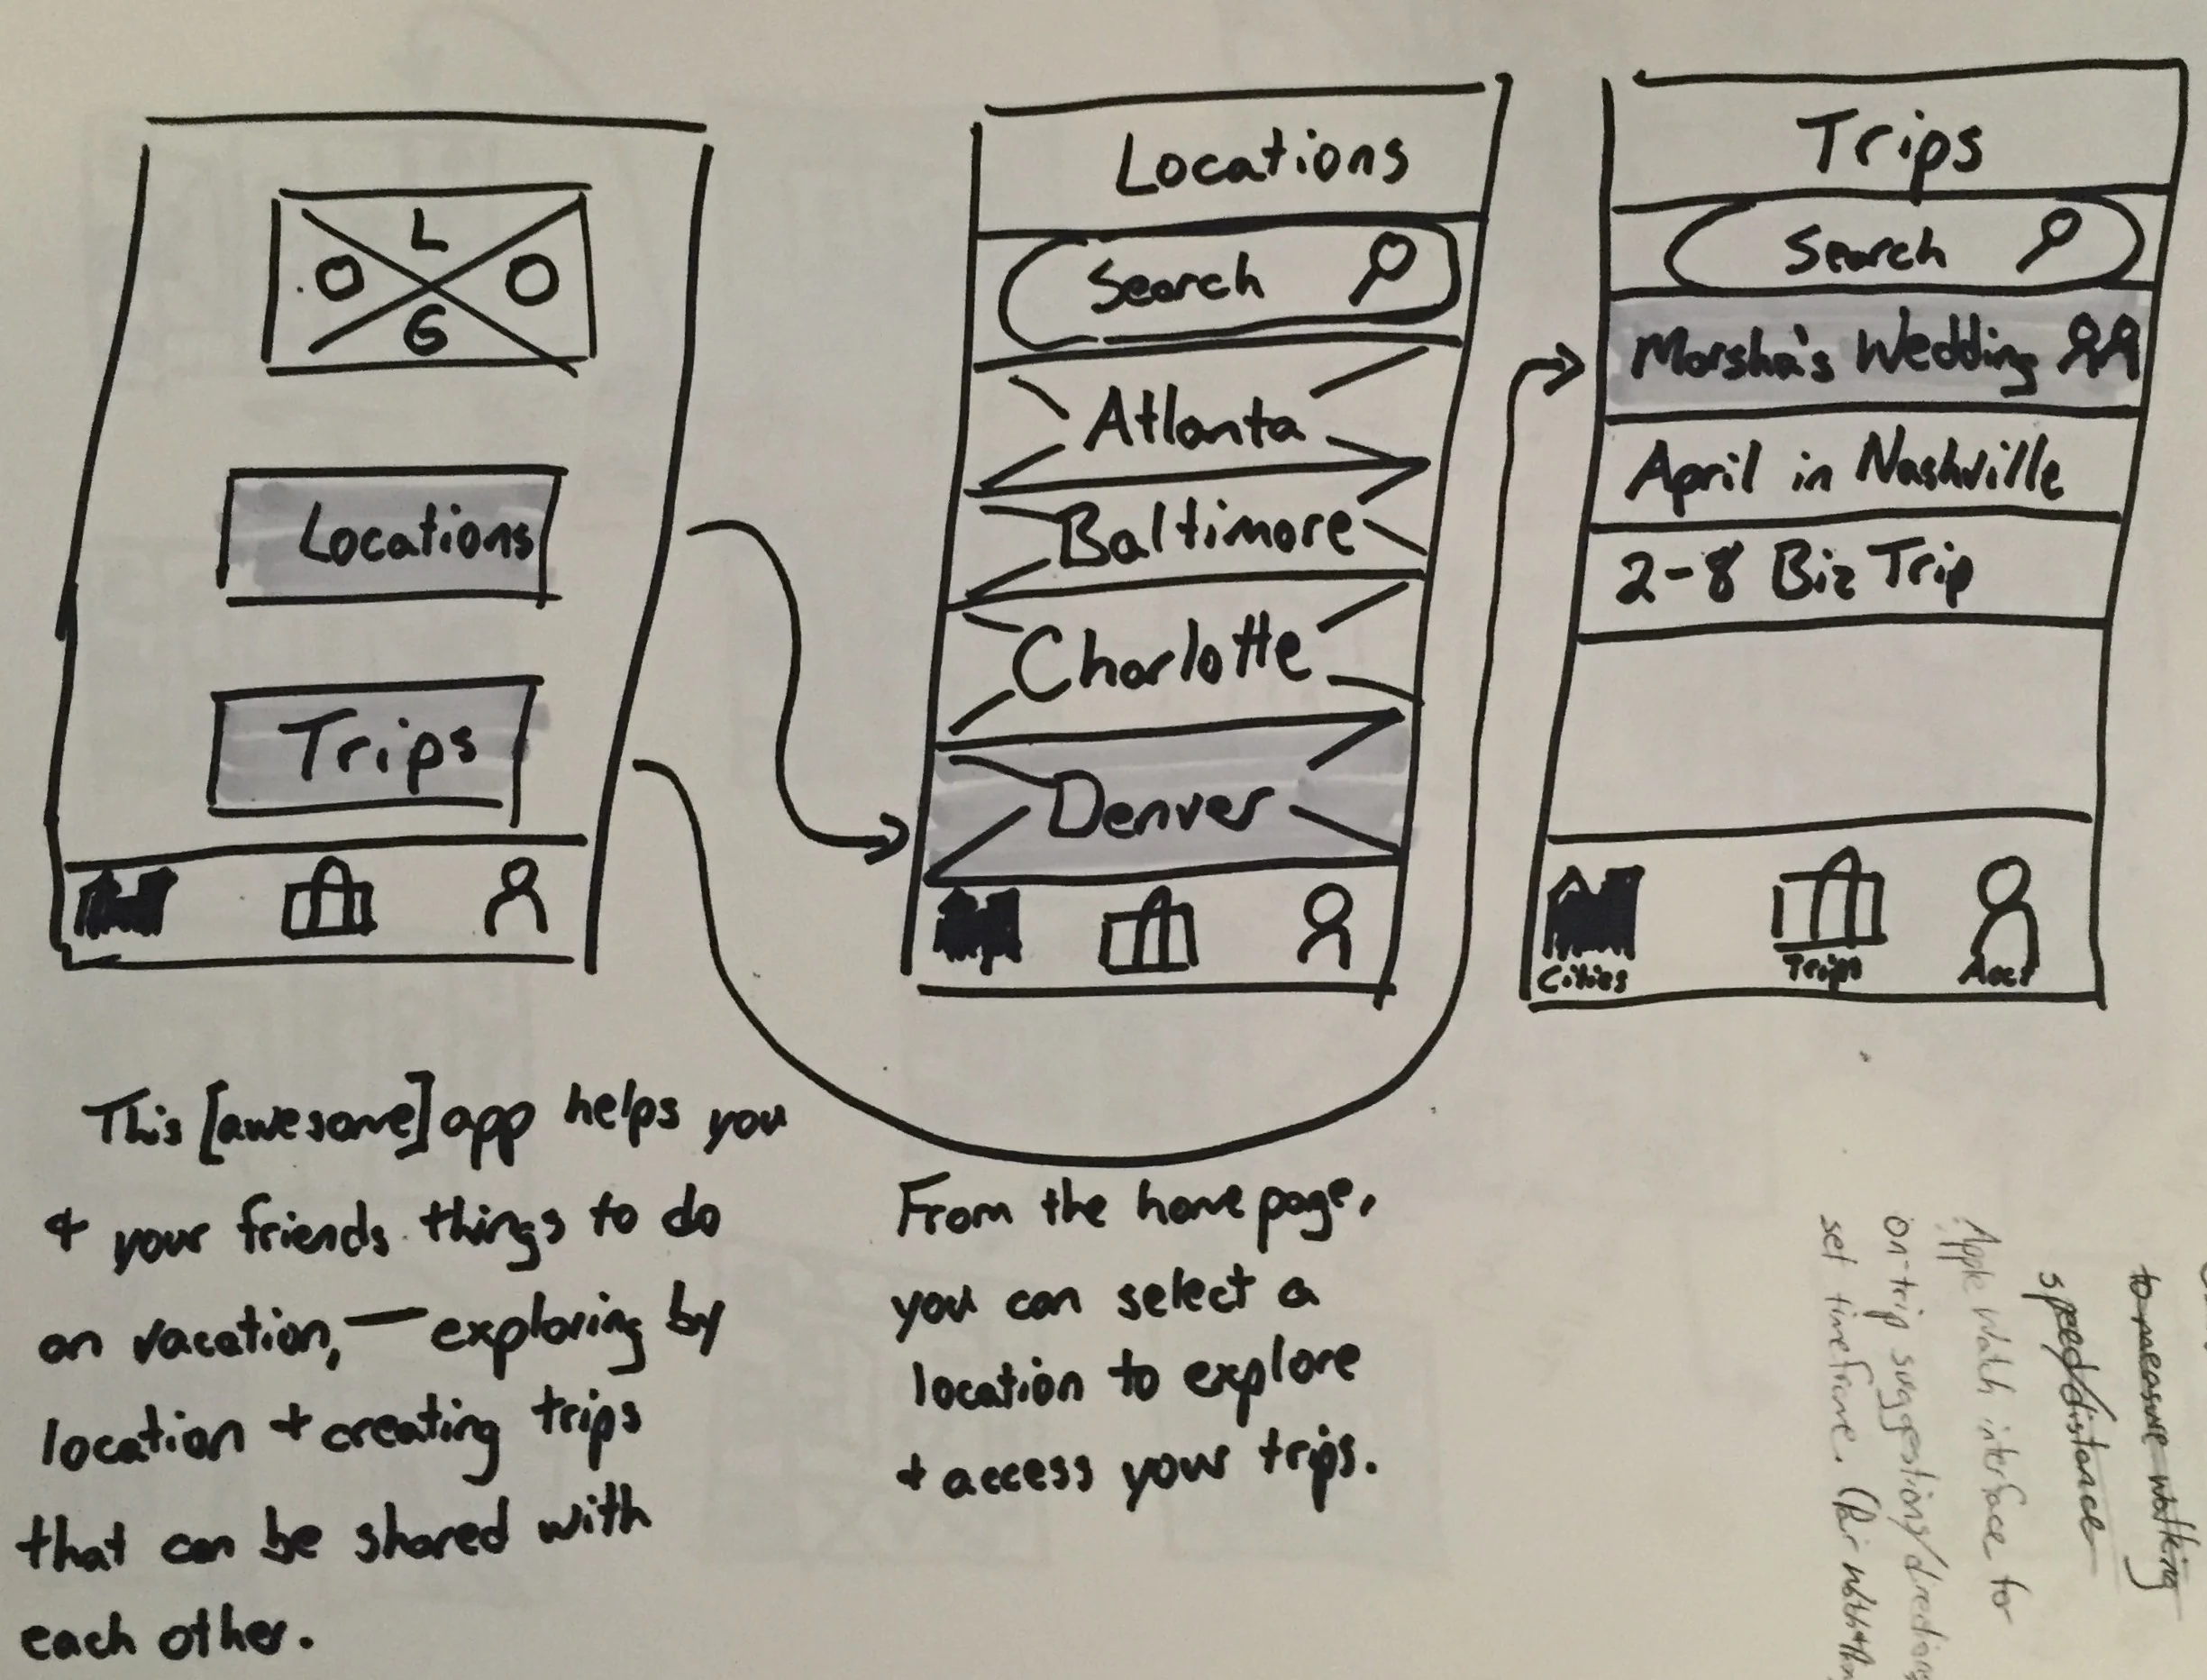 L
O O
G
Locations
Trips
Locations
Search
Atlanta
Baltimore
Charlotte
Denver
Trips
Search
Marsha's Wedding
April in Nashville
2-8 Biz Trip
Cities
Trips
Acct
This [awesome] app helps you
+ your friends things to do
on vacation, — exploring by
location + creating trips
that can be shared with
each other.
From the home page,
you can select a
location to explore
+ access your trips.
to measure walking
speed/distance
Apple Watch interface for
on-trip suggestions/directions
set timeframe. (Pair with